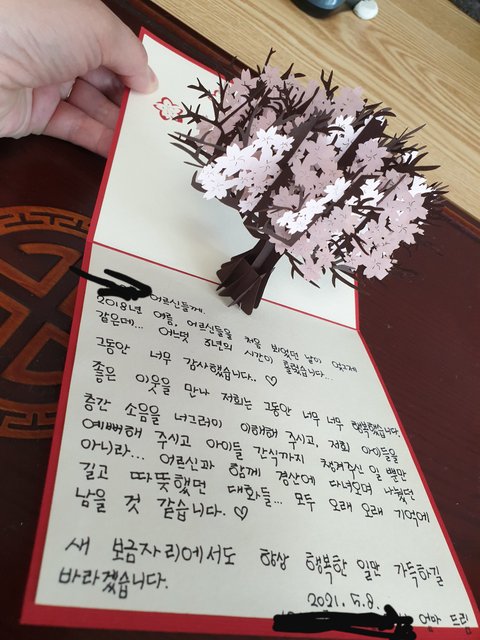 어르신들께.
2018년 여름, 어르신들을 처음 뵈었던 날이 엊그제
같은데... 어느덧 3년의 시간이 흘렀습니다...
그동안 너무 감사했습니다.. ♡
좋은 이웃을 만나 저희는 그동안 너무 너무 행복했습니다.
층간 소음을 너그러이 이해해 주시고, 저희 아이들을
예뻐해 주시고 아이들 간식까지 챙겨주신 일 뿐만
아니라... 어르신과 함께 경산에 다녀오며 나눴던
길고 따뜻했던 대화들... 모두 오래 오래 기억에
남을 것 같습니다. ♡
새 보금자리에서도 항상 행복한 일만 가득하길
바라겠습니다.
2021. 5. 8.
엄마 드림